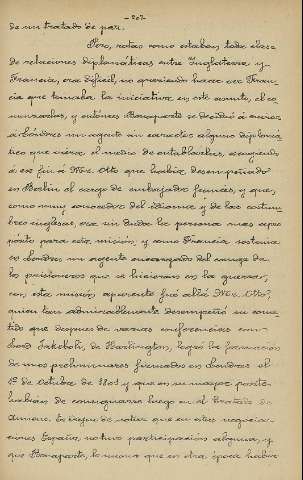 - 207 -
de un tratado de paz.
Pero, rotas como estaban toda clase
de relaciones diplomáticas entre Inglaterra y
Francia, era difícil, no apareciendo hacer ver Fran-
cia que tomaba la iniciativa en este asunto, el co-
municarlos, y entonces Bonaparte se decidió á enviar
á Londres un agente sin carácter alguno diplomá-
tico que viera el medio de entablarlas, escogiendo
á ese fin á Mr. Otto que había desempeñado
en Berlin el cargo de embajador francés, y que,
como muy conocedor del idioma y de las costum-
bres inglesas era sin duda la persona mas apro-
pósito para esta misión, y como Francia sostenia
en Londres un agente encargado del cange de
los prisioneros que se hicieran en la guerra,
con esta misión aparente fué allá Mr. Otto,
quien tan admirablemente desempeñó su come-
tido que despues de varias conferencias con
Lord de Harlington, logró la formación
de unos preliminares firmados en Londres el
1º de Octubre de 1801 y que en su mayor parte
habían de consignarse luego en el Tratado de
Amiens. Es digno de notar que en estas negocia-
ciones España no tuvo participación alguna, y
que Bonaparte, lo mismo que en otra época había